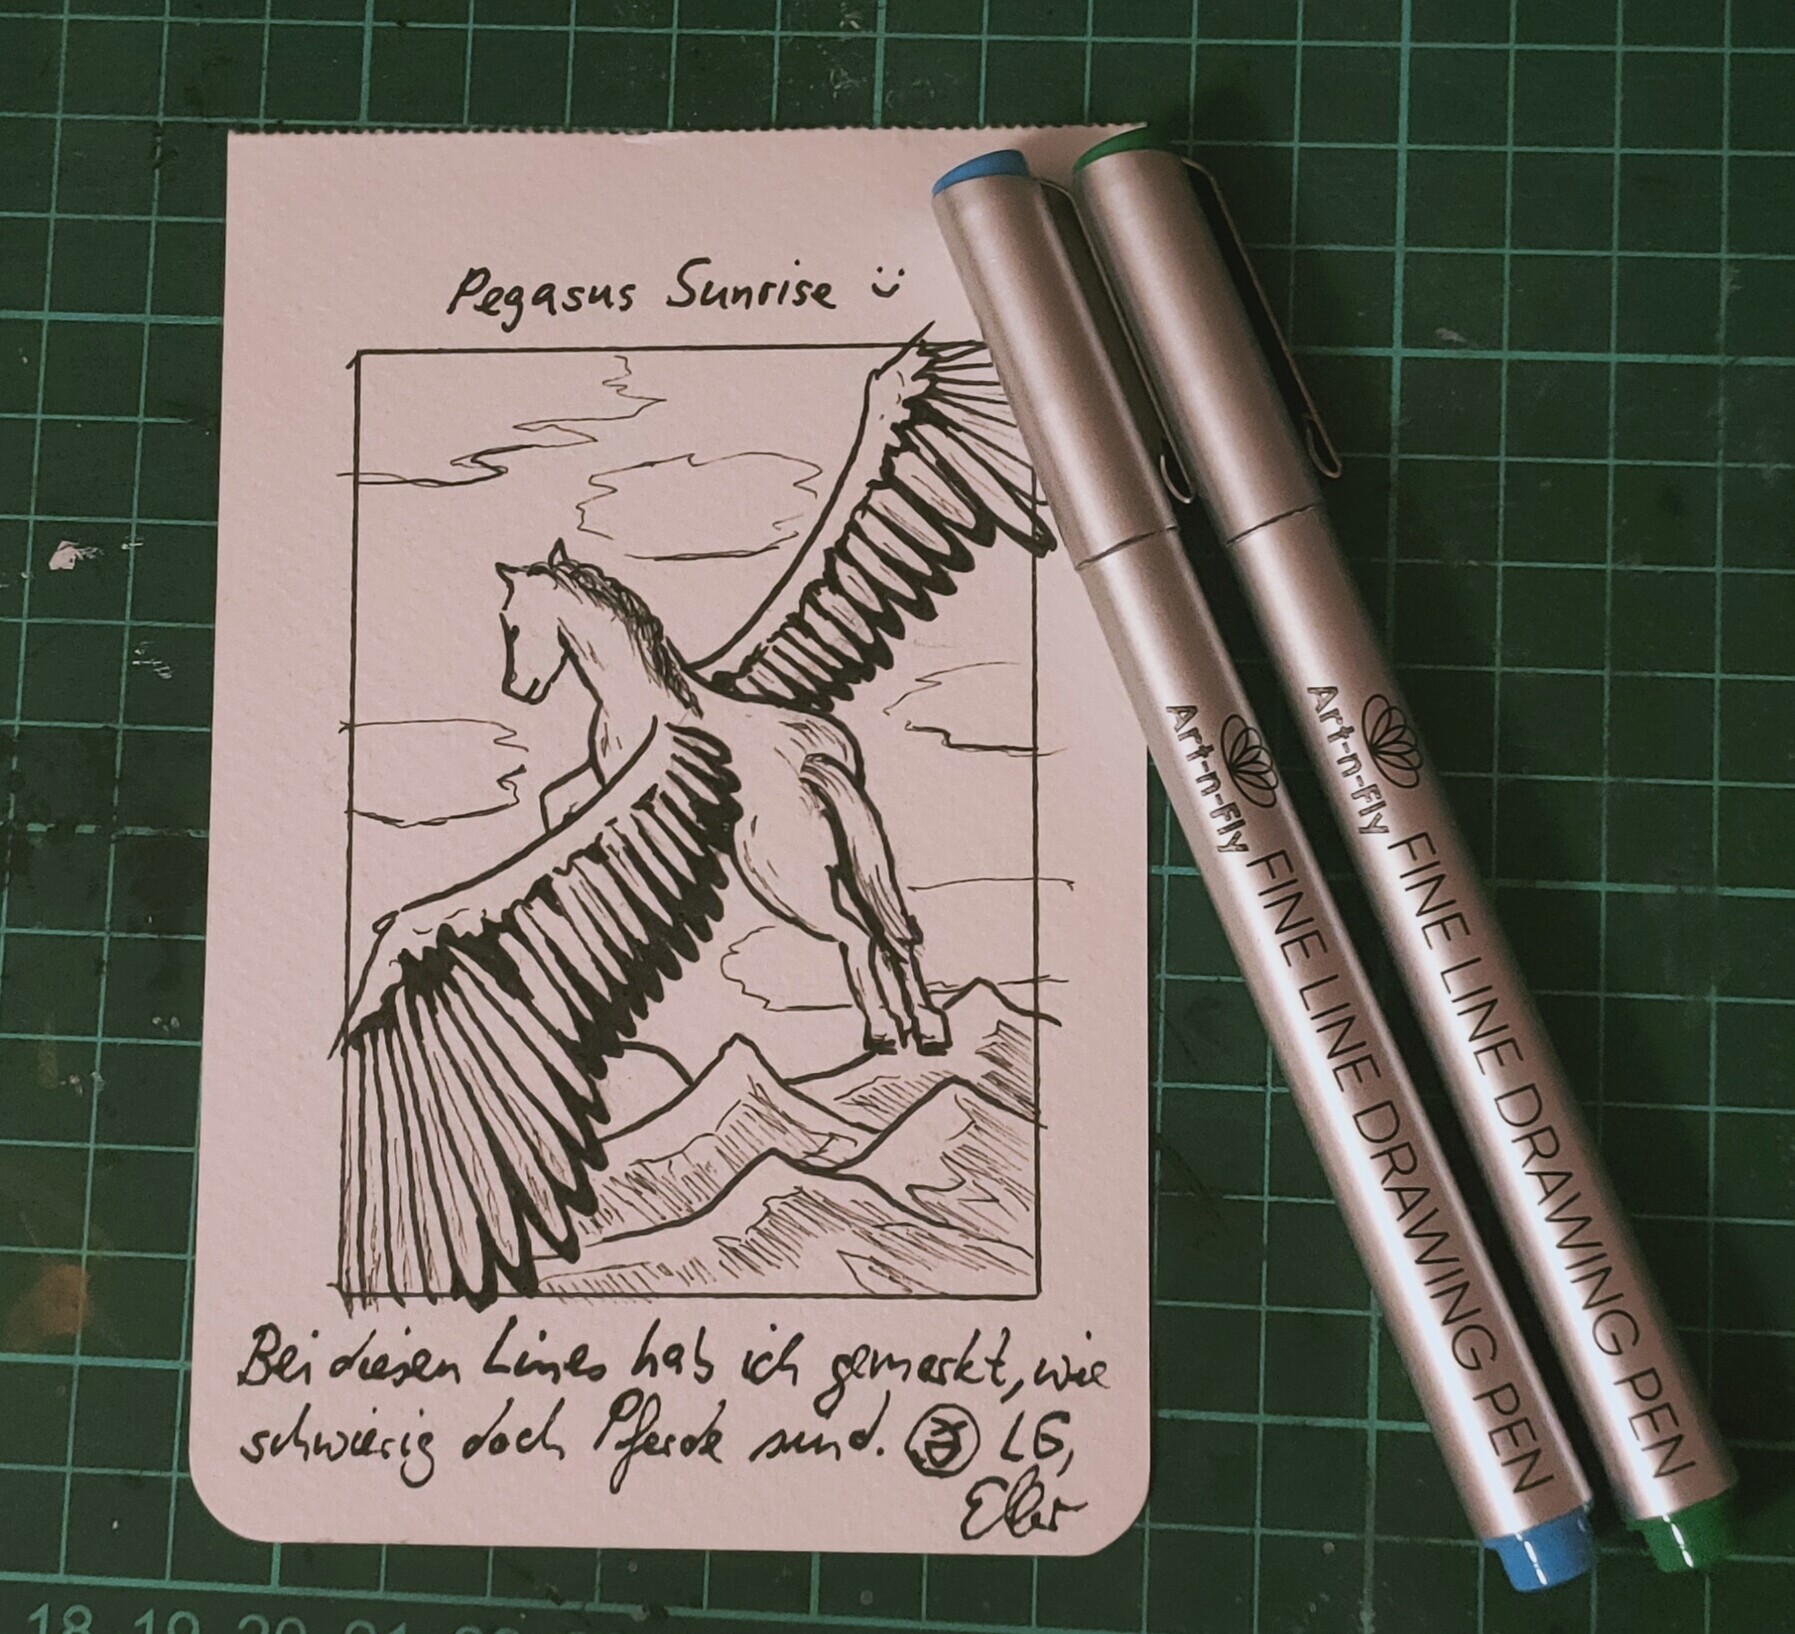 Pegasus Sunrise
Bei diesen Lines hab ich gemerkt, wie
schwierig doch Pferde sind. LG,
Art-n-Fly FINE LINE DRAWING PEN
Art-n-Fly FINE LINE DRAWING PEN
18 19 20 21